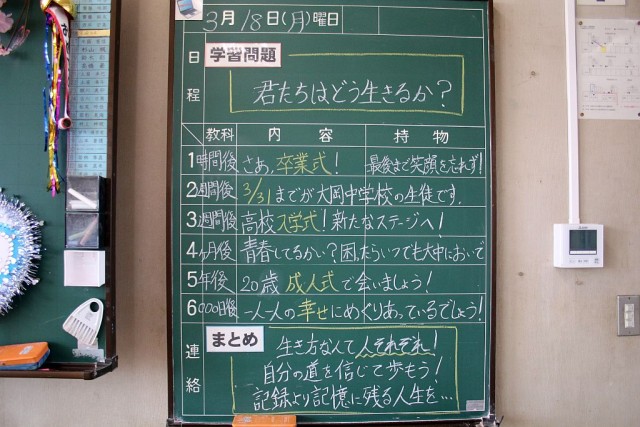 3月18日(月)曜日
日程
学習問題
君たちはどう生きるか?
教科 内容 持物
1時間後 さあ,卒業式! 最後まで笑顔を忘れず!
2週間後 3/31までが大岡中学校の生徒です.
3週間後 高校入学式!新たなステージへ!
4ヶ月後 青春してるかい?困ったらいつでも大中においで
5年後 20歳 成人式で会いましょう!
6000日後 一人一人の幸せにめぐりあっているでしょう!
連絡
まとめ
生き方なんて人それぞれ!
自分の道を信じて歩もう!
記録より記憶に残る人生を…